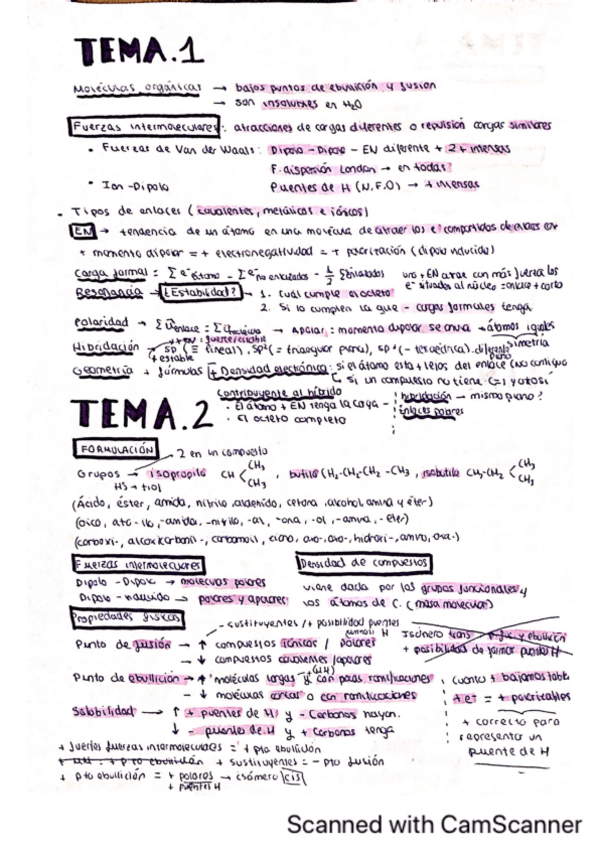 TEMA.1
Moléculas orgánicas → bajos puntos de ebullición y fusion
→ son insolubles en H2O
Fuerzas intermoleculares: atracciones de cargas diferentes o repulsión cargas similares
• Fuerzas de Van der Waals: Dipolo - Dipolo - EN diferente + 2+ intensas
F. dispersión London → en todas
• Ion - Dipolo Puentes de H (N,F,O) → + intensas
- Tipos de enlaces (covalentes, metálicos e iónicos)
EN → tendencia de un átomo en una molécula de atraer los e- compartidos de enlace cov
+ momento dipolar = + electronegatividad = + polarización (dipolo inducido)
Carga formal = Σ e- átomo - Σ e- no enlazados - 1/2 Σ enlazados uno + EN atrae con más fuerza los
e- situados al núcleo = enlace + corto
Resonancia → ¿Estabilidad? → 1. Cuál cumple el octeto
2. Si lo cumplen la que - cargas formales tenga
Polaridad → Σ → Apolar: momento dipolar se anula → átomos iguales
simetría
Hibridación → sp (= lineal), sp2 (= triangular plana), sp3 (- tetraédrica).
+ estable
Geometría + fórmulas + Densidad electrónica: si el átomo esta + lejos del enlace (no contiguo
↳ si un compuesto no tiene C=1 y otro sí
Contribuyente al híbrido
• El átomo + EN tenga la carga -
• El octeto completo
hibridación → mismo plano?
Enlaces polares
TEMA.2
FORMULACIÓN
2 en un compuesto
Grupos → isopropilo CH < CH3 CH3, butilo (H2-CH2-CH2-CH3, isobutilo CH2-CH2 < CH3 CH3
HS → tiol
(Ácido, éster, amida, nitrilo, aldehido, cetona, alcohol, amina y éter)
(oico, ato-ilo, -amida, -nitrilo, -al, -ona, -ol, -amina, -eter)
(carboxi-, alcoxicarbonil-, carbamoil, ciano, oxo-, oxo-, hidroxi-, amino, oxa-)
Fuerzas intermoleculares
Dipolo - Dipolo → moléculas polares
Dipolo - inducido → polares y apolares
Densidad de compuestos
viene dada por los grupos funcionales y
los átomos de C. (masa molecular)
Propiedades físicas
- sustituyentes / + posibilidad puentes H
Punto de fusión → ↑ compuestos iónicos / polares
→ ↓ compuestos covalentes / apolares
Isómero trans + p.fus y ebullición
+ posibilidad de formar puente H
Punto de ebullición → ↑ moléculas largas y con pocas ramificaciones
- ↓ moléculas cortas o con ramificaciones
cuanto + bajamos tabla
+ e- = + polarizables
Solubilidad → ↑ + puentes de H y - Carbonos hayan.
↓ - puentes de H y + Carbonos tenga
+ correcto para
representar un
puente de H
+ fuertes fuerzas intermoleculares = + pto ebullición
+ sustituyentes = - pto fusión
+ pto ebullición = + polares → isómero cis
+ puentes H
Scanned with CamScanner